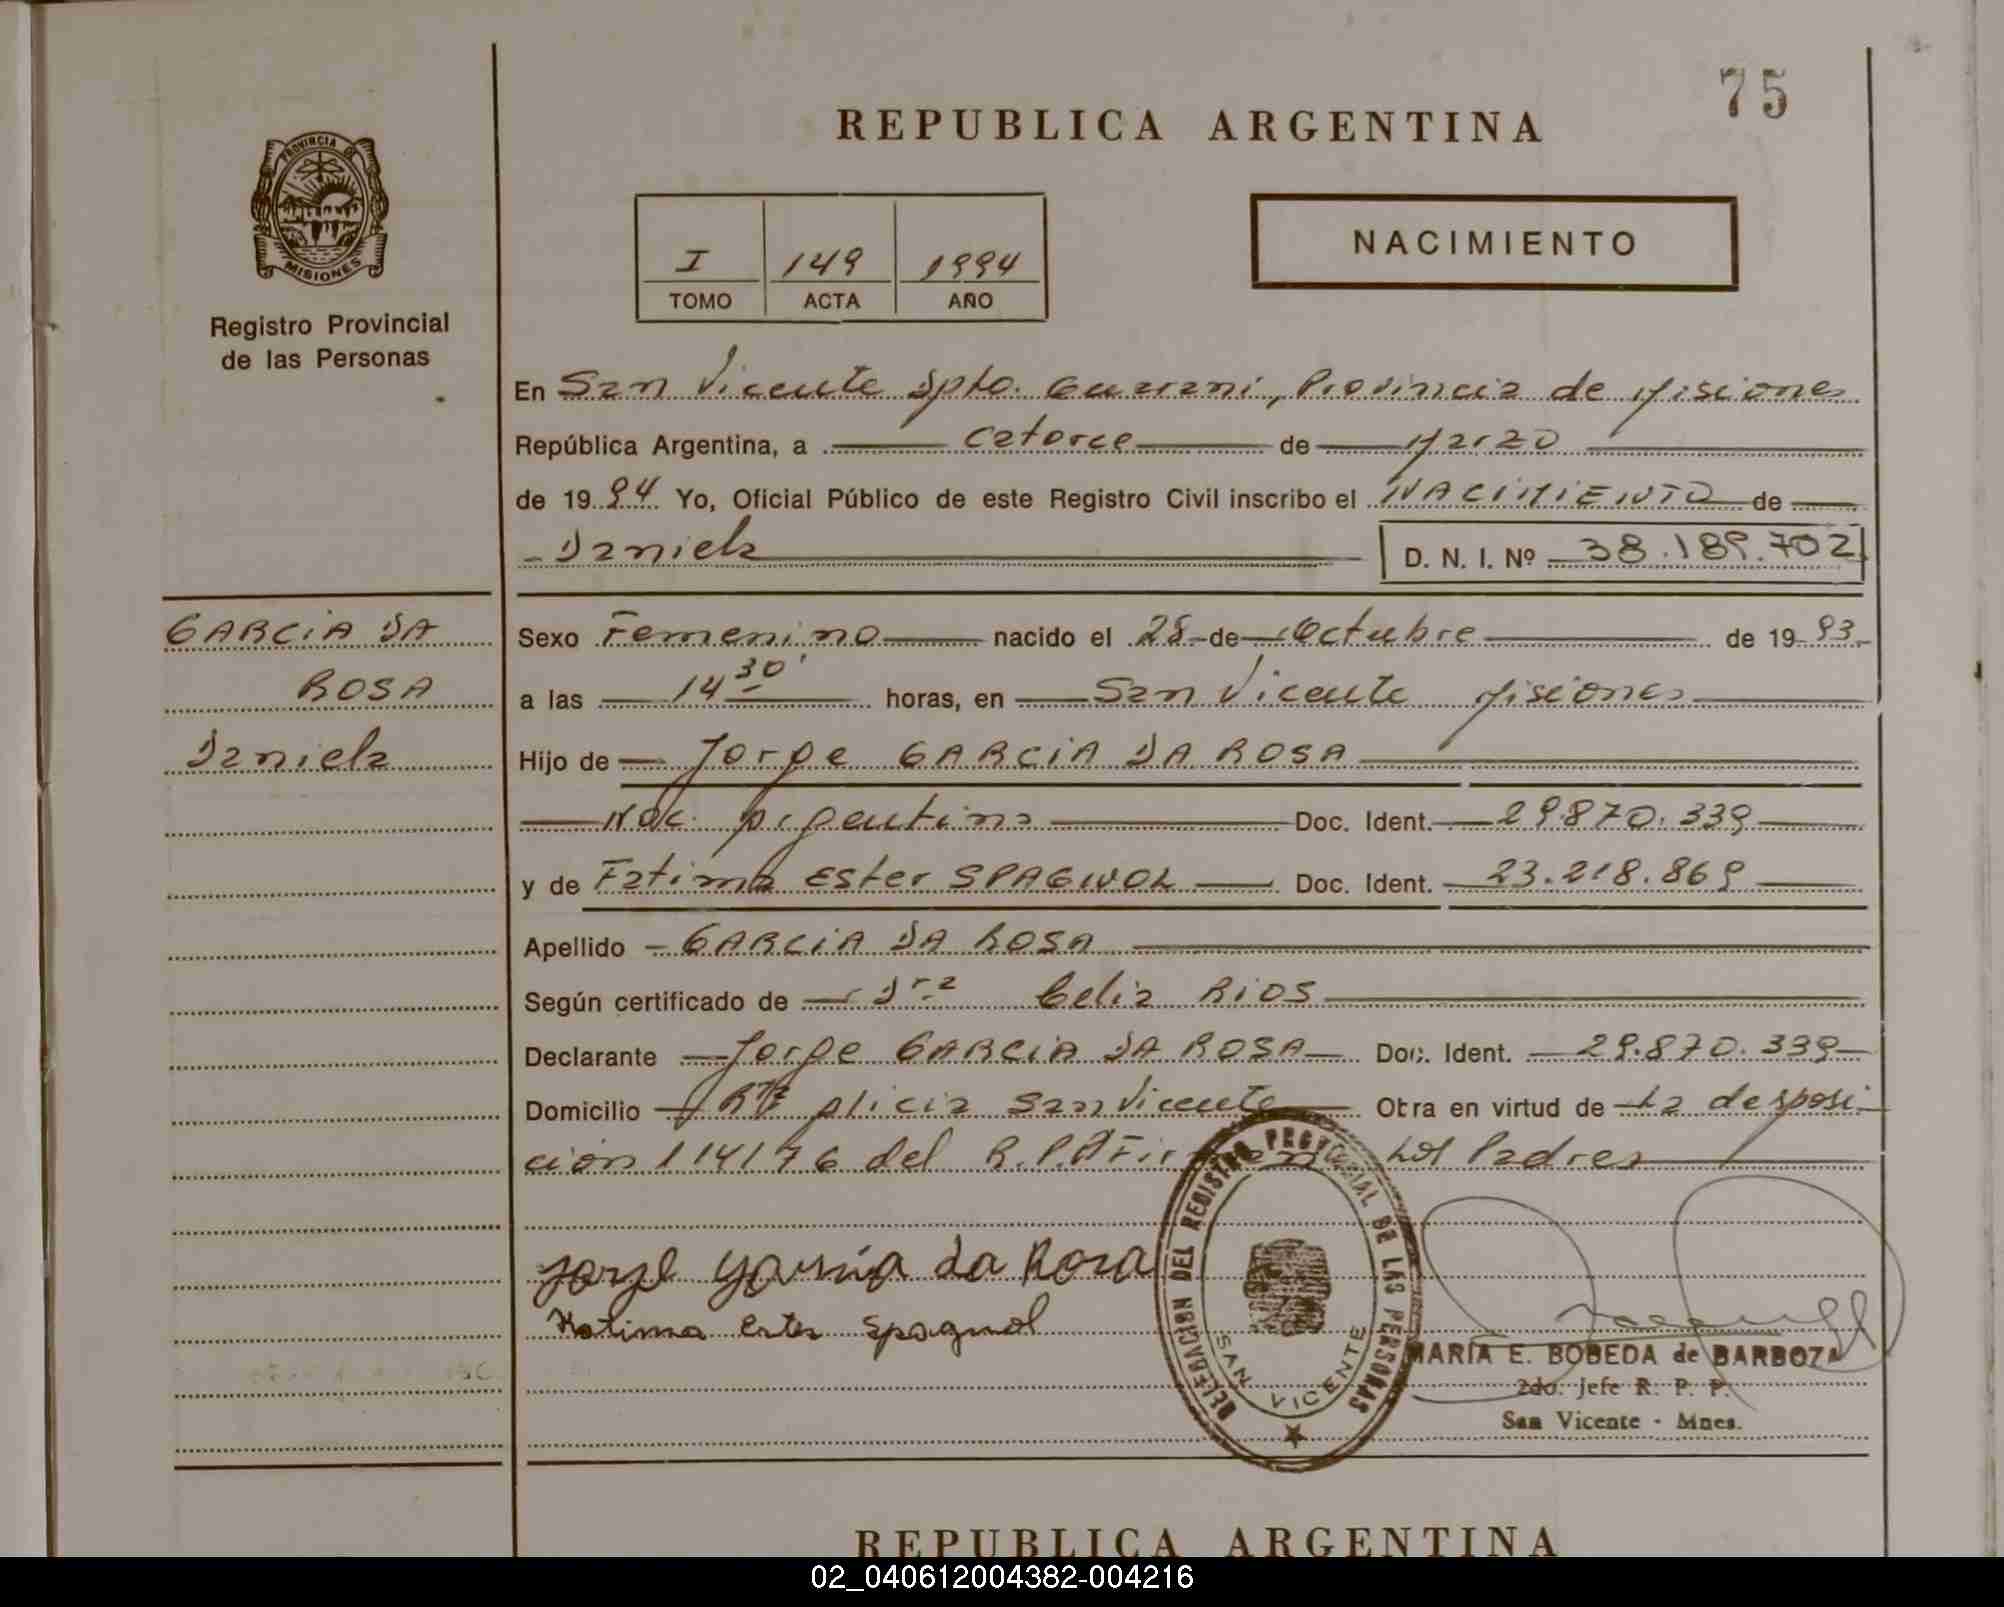 75
REPUBLICA ARGENTINA
PROVINCIA DE
MISIONES
Registro Provincial
de las Personas
I 149 1994
TOMO ACTA AÑO
NACIMIENTO
En San Vicente Dpto. Guarani, Provincia de Misiones
República Argentina, a catorce de Marzo
de 1994 Yo, Oficial Público de este Registro Civil inscribo el NACIMIENTO de
Daniela D. N. I. Nº 38.189.702
GARCIA DA
ROSA
Daniela
Sexo Femenino nacido el 28 de Octubre de 1993
a las 14 30' horas, en San Vicente Misiones
Hijo de Jorge GARCIA DA ROSA
Nac. Argentina Doc. Ident. 29.870.339
y de Fatima Ester SPAGNOL Doc. Ident. 23.218.869
Apellido GARCIA DA ROSA
Según certificado de Dra Celia RIOS
Declarante Jorge GARCIA DA ROSA Doc. Ident. 29.870.339
Domicilio Alicia San Vicente Obra en virtud de La desposi-
cion 114176 del R.P.P Los Padres
Jorge García da Rosa
Fatima Ester Spagnol
DELEGACION DEL REGISTRO PROVINCIAL DE LAS PERSONAS
SAN VICENTE
MARIA E. BOBEDA de BARBOZA
2do. Jefe R. P. P.
San Vicente - Mnes.
REPUBLICA ARGENTINA
02_040612004382-004216